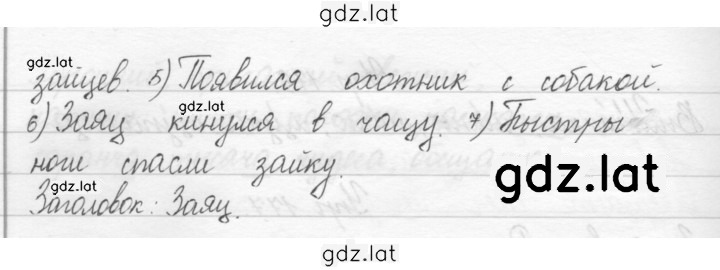 gdz.lat
gdz.lat
зайцев. 5) Появился охотник с собакой.
gdz.lat
6) Заяц кинулся в чащу. 7) Пыстры
ноги спасли зайку.
gdz.lat
gdz.lat
Заголовок: Заяц.
gdz.lat